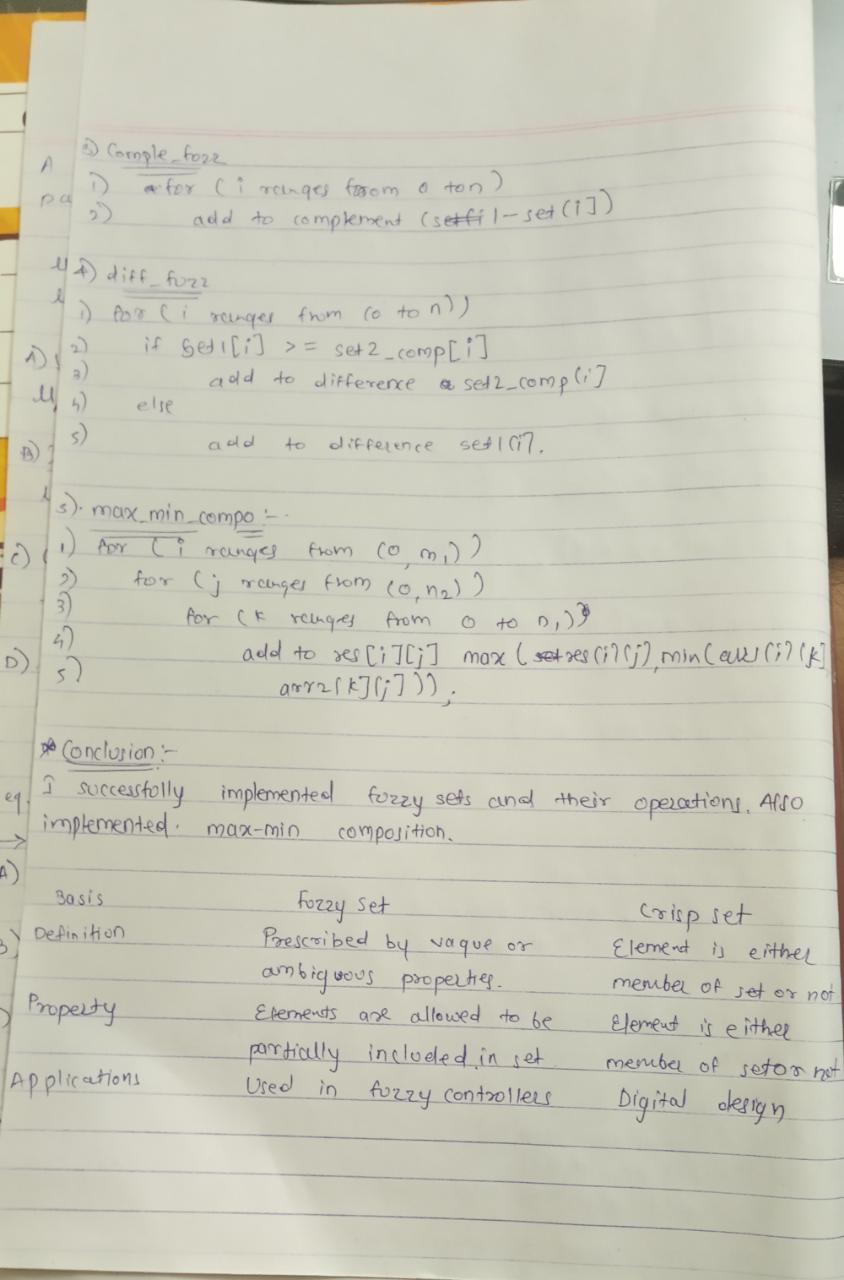 3) Comple_fozz
1) for ( i ranges from 0 to n )
2) add to complement (1 - set (i])
4) diff_fuzz
1) for ( i ranges from (0 to n))
2) if set1[i] >= set2_comp[i]
3) add to difference set2_comp(i]
4) else
5) add to difference set1(i].
5). max_min_compo :-
1) for ( i ranges from (0, m1) )
2) for (j ranges from (0, n2) )
3) for (k ranges from 0 to n1))
4) add to res[i][j] max (res(i](j), min(arr1(i](k]
5) arr2[k][j])).
* Conclusion :-
I successfully implemented fuzzy sets and their operations. Also
implemented. max-min composition.
Basis Fuzzy set Crisp set
Definition Prescribed by vague or Element is either
ambiguous properties. member of set or not
Property Elements are allowed to be Element is either
partially included in set member of set or not
Applications Used in fuzzy controllers Digital design